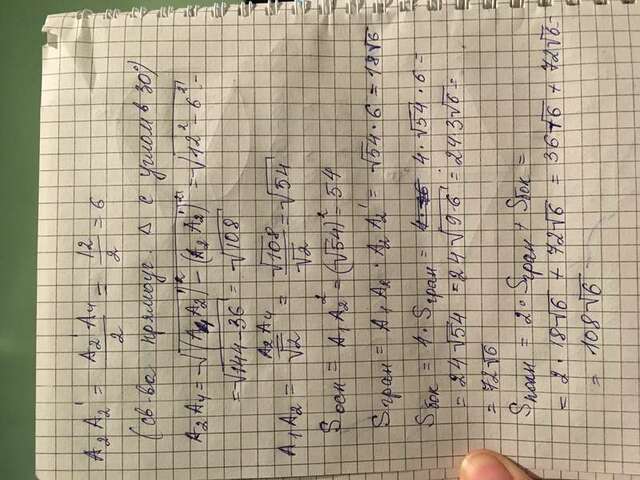 A₂A₂' = A₂'A₄/2 = 12/2 = 6
(св-во прямоуг. Δ с углом в 30°)
A₂A₄ = √((A₄A₂')² - (A₂A₂')²) = √(12² - 6²) =
= √(144-36) = √108
A₁A₂ = A₂A₄/√2 = √108/√2 = √54
Sосн = A₁A₂² = (√54)² = 54
Sгран = A₁A₂ · A₂A₂' = √54 · 6 = 18√6
Sбок = 4 · Sгран = 4 · √54 · 6 =
= 24√54 = 24√(9·6) = 24·3√6 =
= 72√6
Sполн = 2 · Sгран + Sбок =
= 2 · 18√6 + 72√6 = 36√6 + 72√6 =
= 108√6